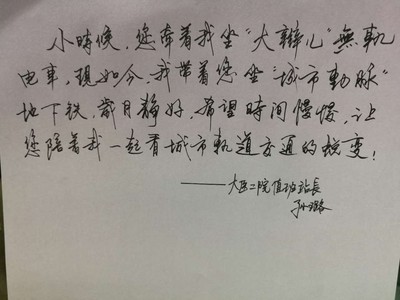 小時候，您牽着我坐“大辮儿”無軌
电車，現如今，我带着您坐“城市動脉”
地下鉄，歲月静好，希望時间慢慢，让
您陪着我一起看城市軌道交通的蜕变！
——大医二院值班站長
孙